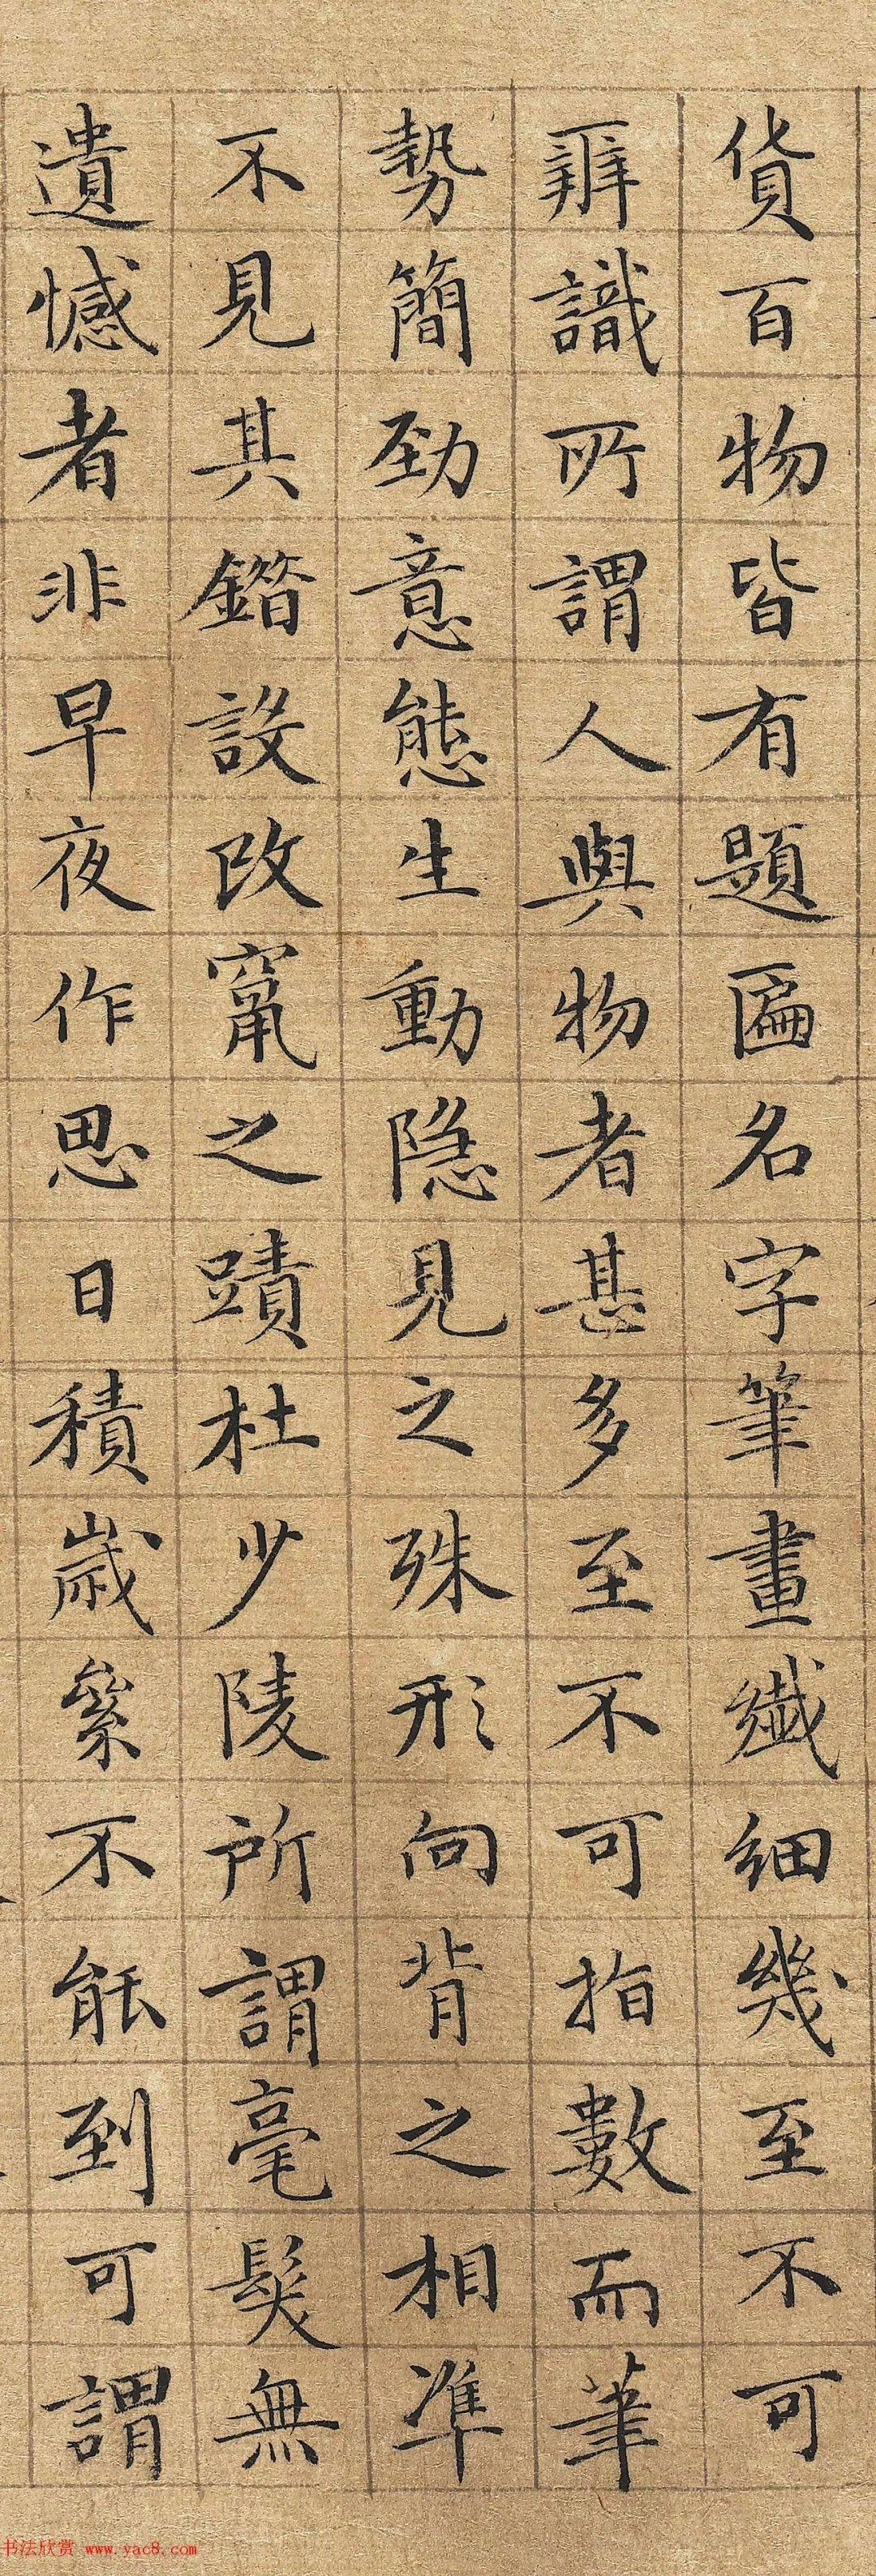 貨百物皆有題匾名字筆畫纎細幾至不可
辨識所謂人與物者甚多至不可指數而筆
勢簡勁意態生動隐見之殊形向背之相凖
不見其鐕設改竄之蹟杜少陵所謂毫髮無
遺憾者非早夜作思日積嵗絫不能到可謂
书法欣赏 www.yac8.com